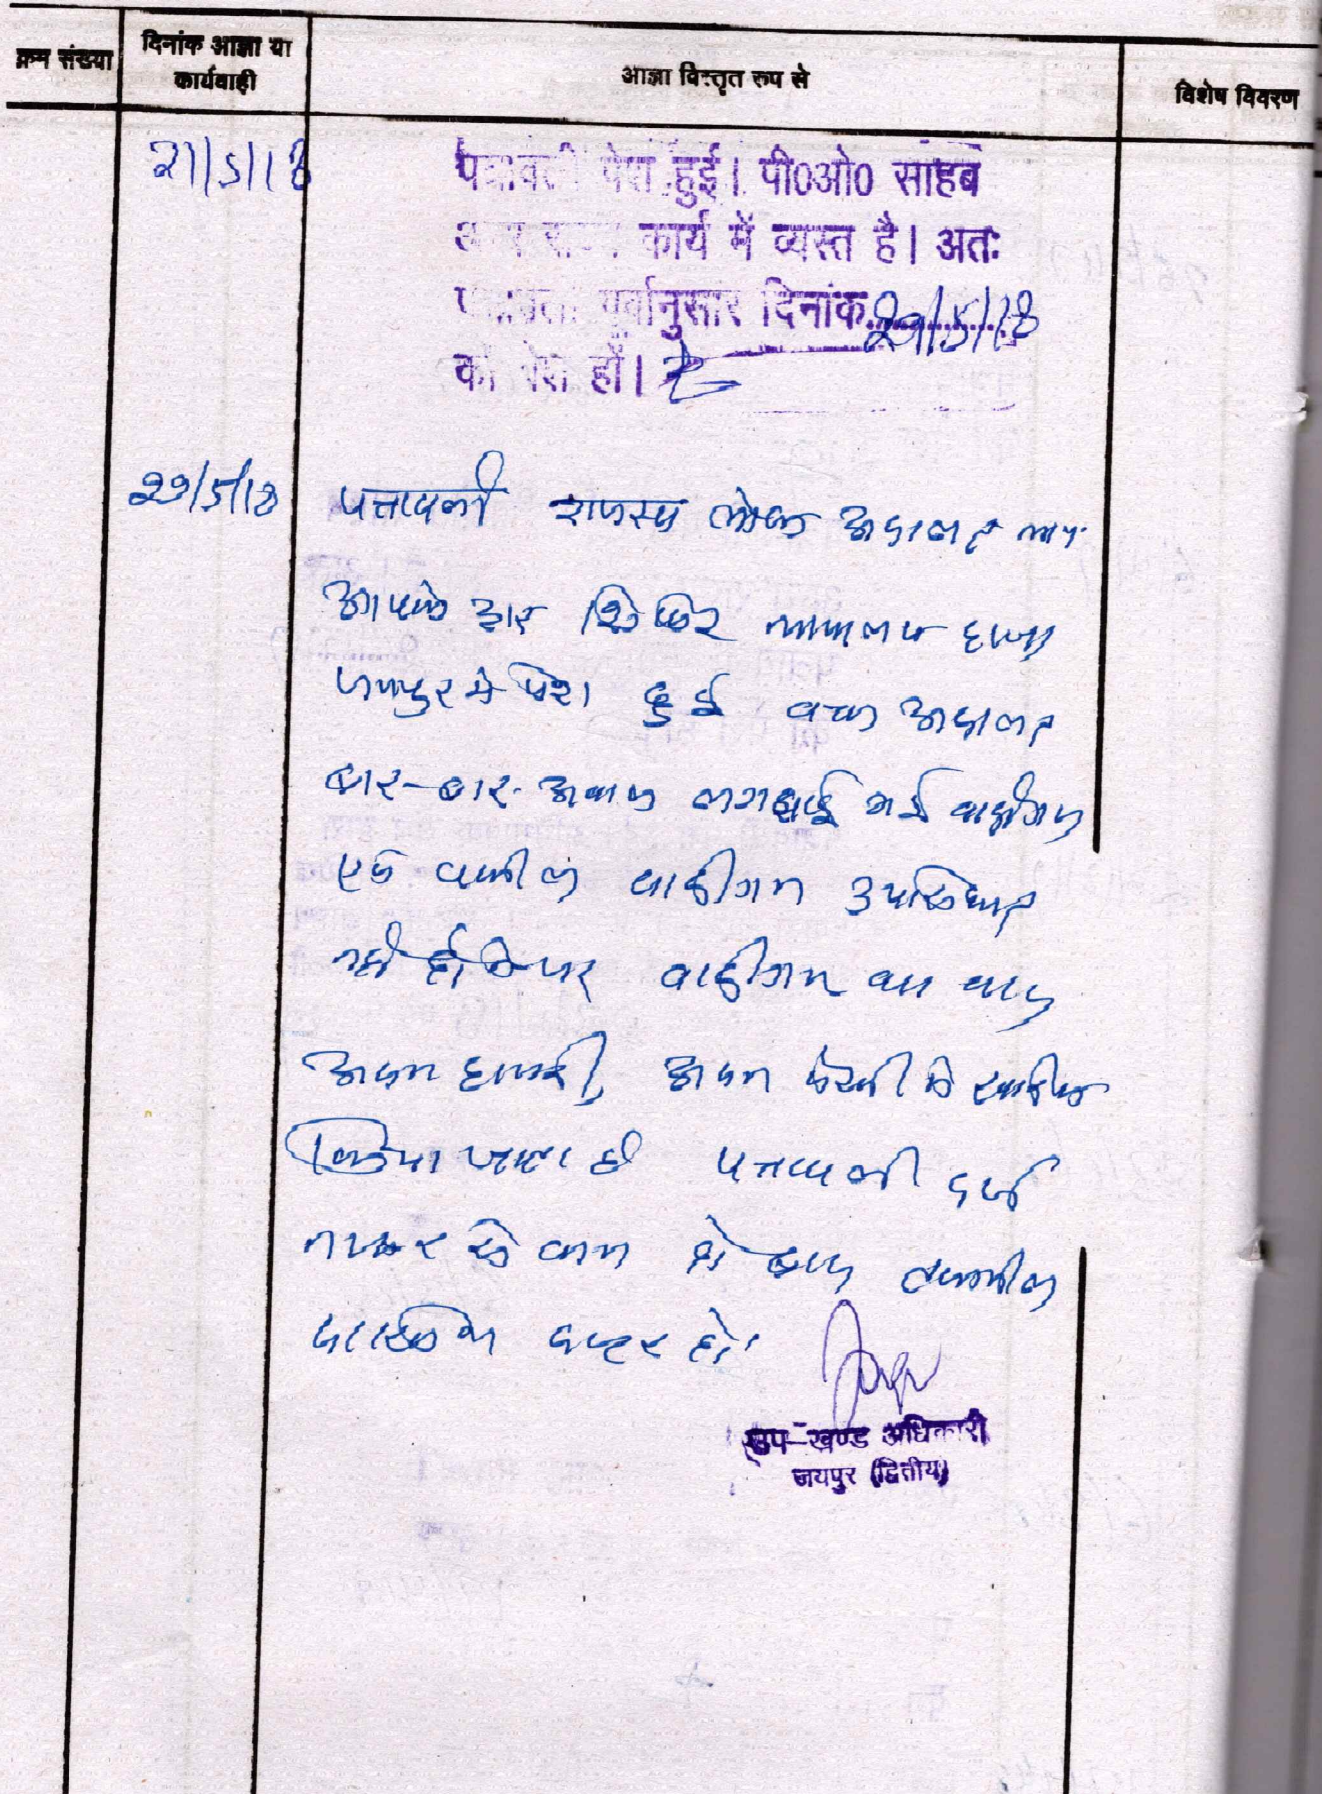 क्रम संख्या
दिनांक आज्ञा या
कार्यवाही
आज्ञा विस्तृत रूप से
विशेष विवरण
21/5/18
पत्रावली पेश हुई। पी०ओ० साहब
कार्य में व्यस्त है। अतः
पत्रावली पूर्वानुसार दिनांक 29/5/18
को पेश हों।
29/5/18
पत्रावली राजस्व लोक अदालत न्याय
आपके द्वार शिविर
जयपुर में पेश हुई वक्त अदालत
बार-बार आवाज लगवाई गई वादीगण
एवं वकील वादीगण उपस्थित
नहीं वादीगण का वाद
अदम हाजरी, अदम पैरवी में खारिज
किया जाता है पत्रावली दर्ज
नम्बर से कम हो बाद तकमील
दाखिल दफ्तर हो।
उप-खण्ड अधिकारी
जयपुर (द्वितीय)